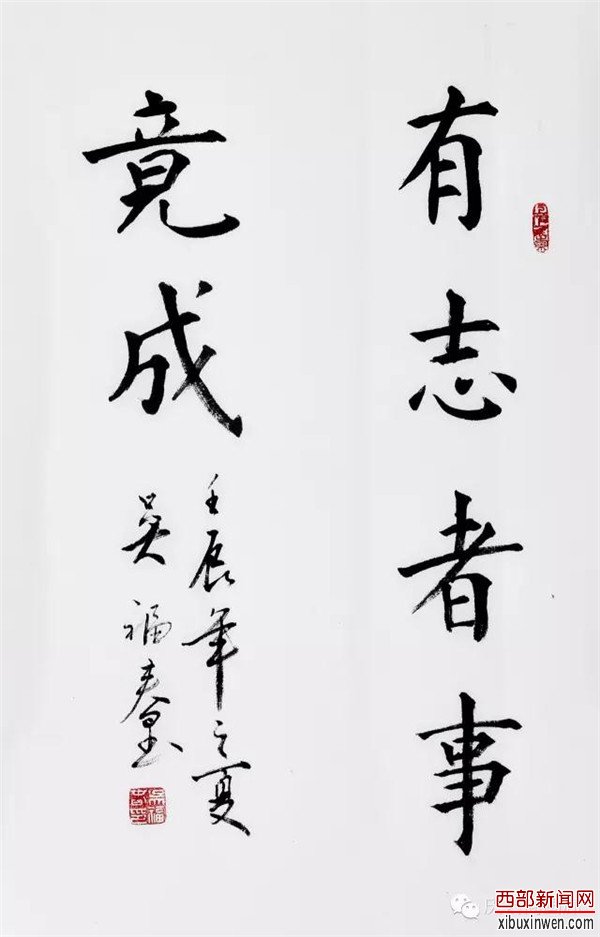 有志者事
竟成
壬辰年之夏
吴福春書
西部新闻网
xibuxinwen.com